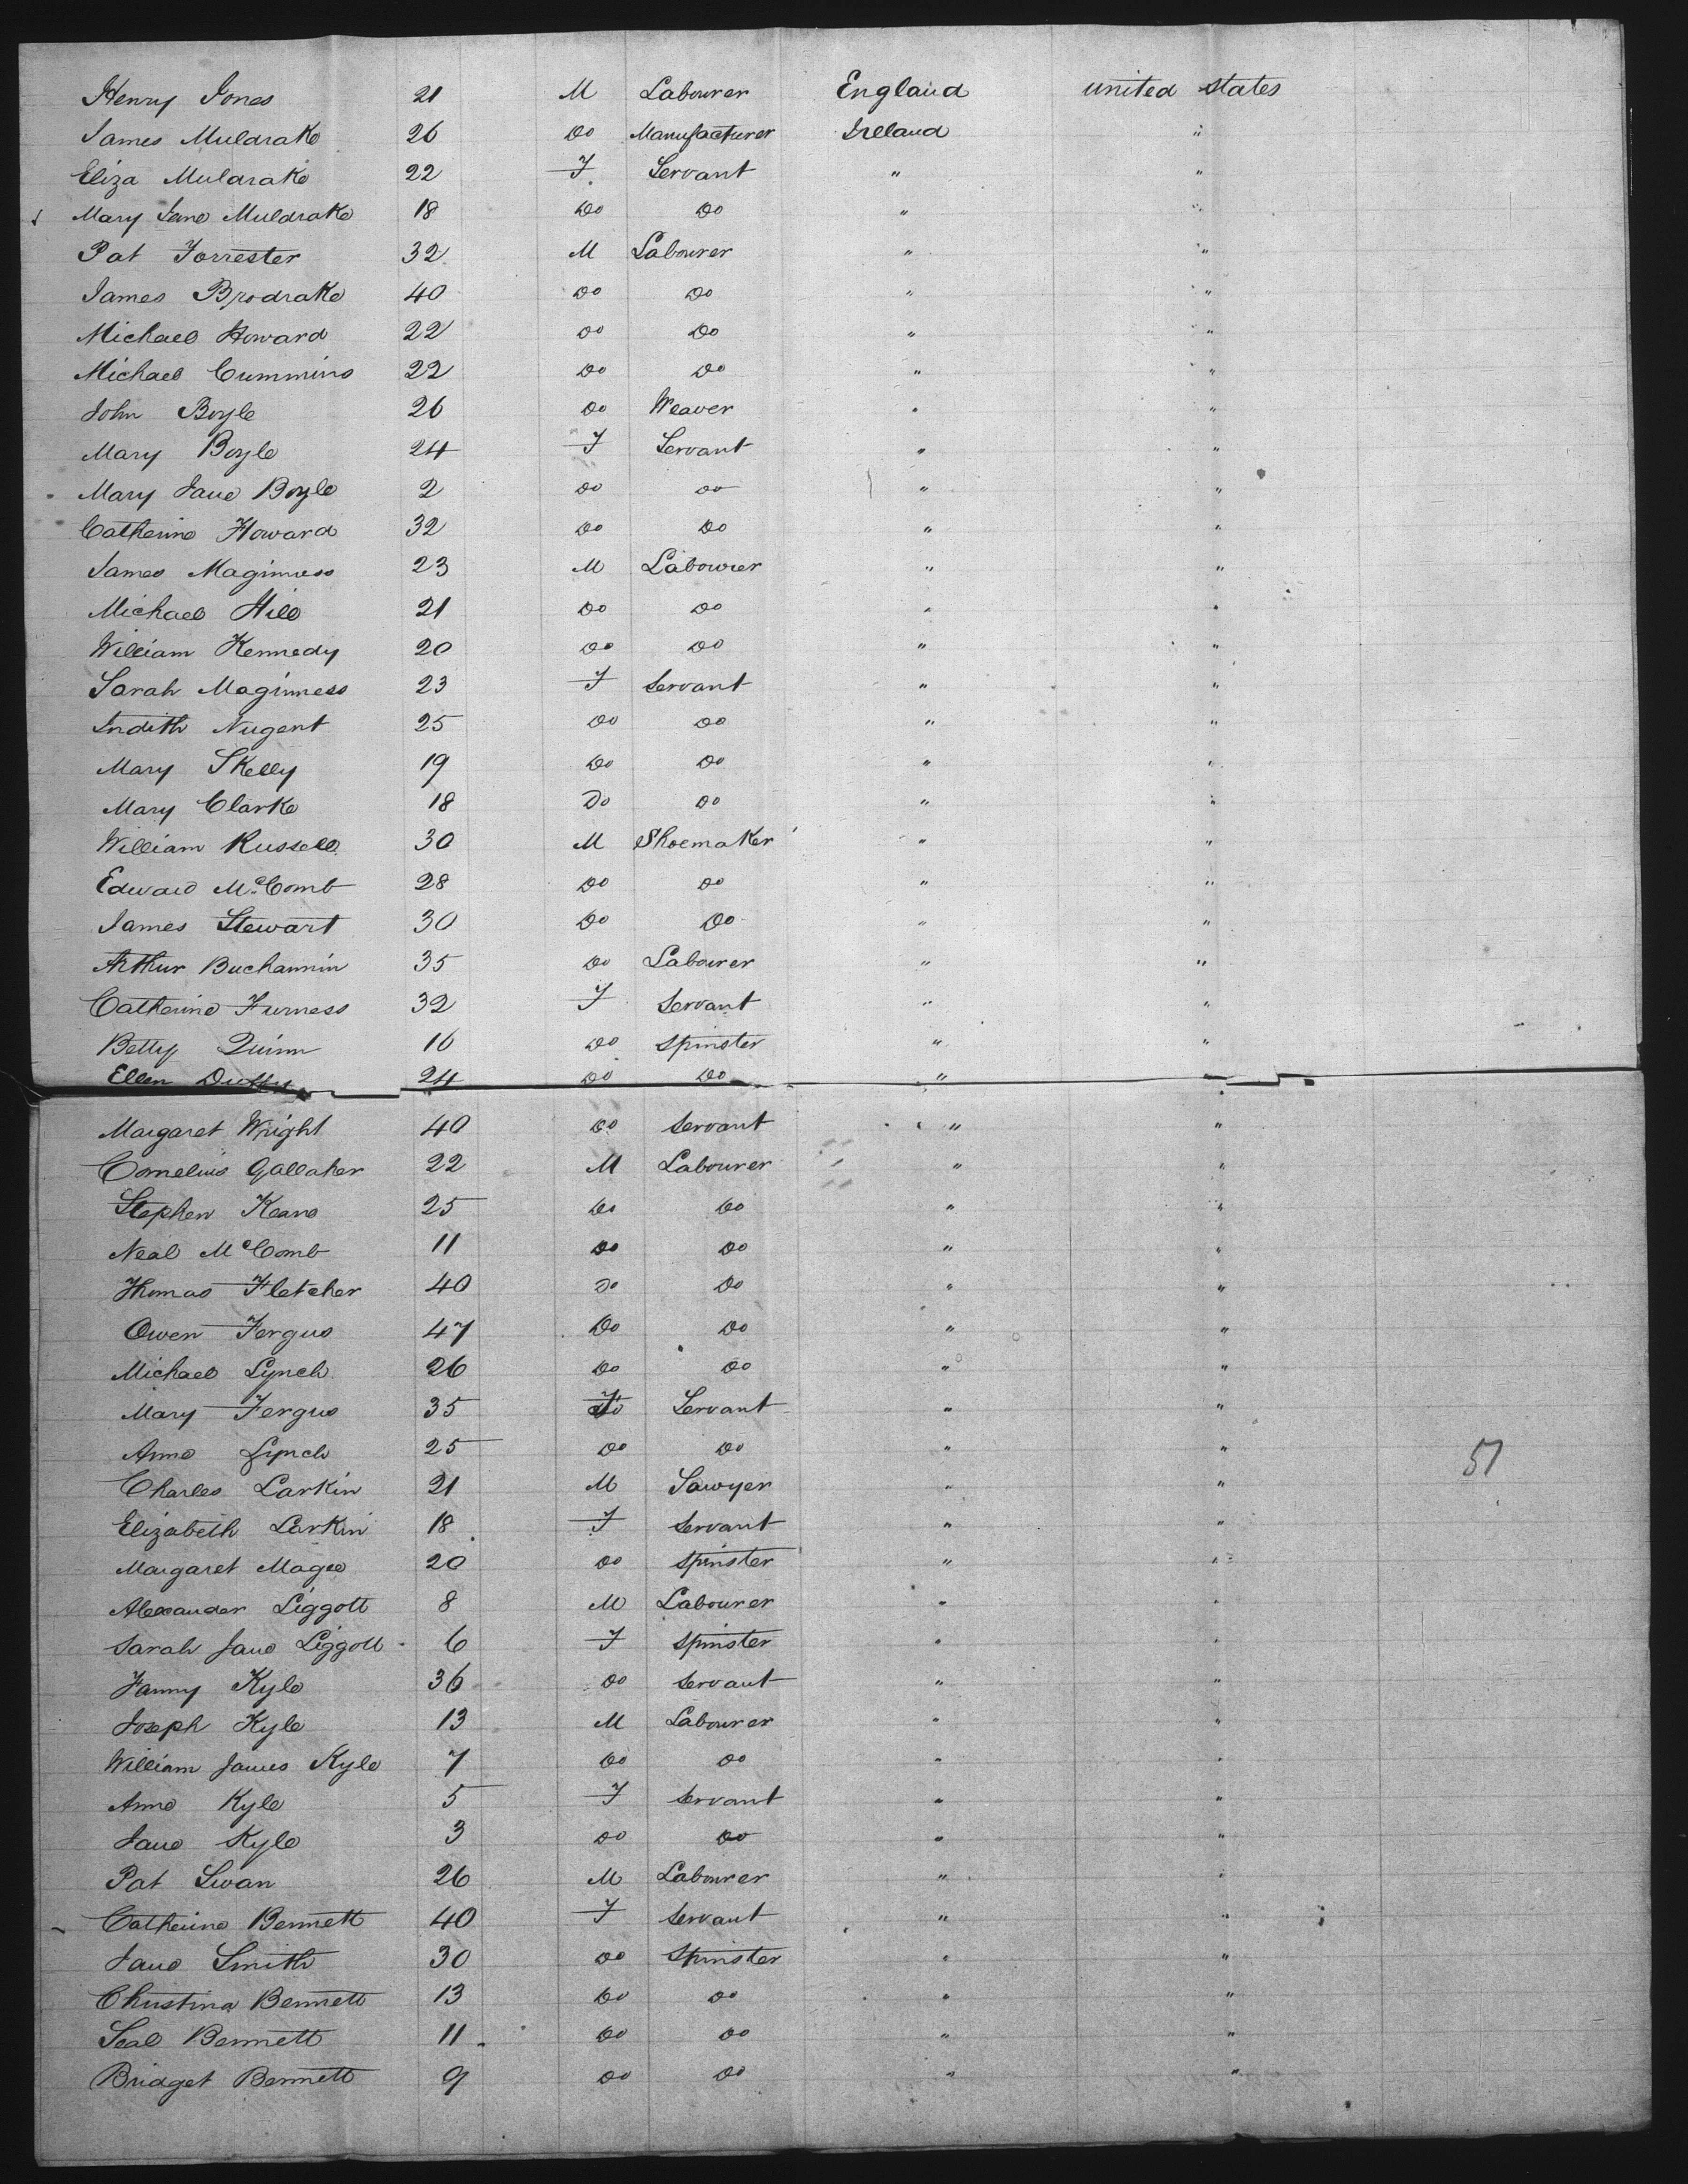 Henry Jones 21 M Labourer England united states
James Muldrake 26 Do Manufacturer Ireland "
Eliza Muldrake 22 F. Servant " "
Mary Jane Muldrake 18 Do Do " "
Pat Forrester 32 M Labourer " "
James Brodrake 40 Do Do " "
Michael Howard 22 Do Do " "
Michael Cummins 22 Do Do " "
John Boyle 26 Do Weaver " "
Mary Boyle 24 F Servant " "
Mary Jane Boyle 2 Do Do " "
Catherine Howard 32 Do Do " "
James Maginness 23 M Labourer " "
Michael Hill 21 Do Do " "
William Kennedy 20 Do Do " "
Sarah Maginness 23 F Servant " "
Indith Nugent 25 Do Do " "
Mary Skelly 19 Do Do " "
Mary Clarke 18 Do Do " "
William Russell 30 M Shoemaker " "
Edward McComb 28 Do Do " "
James Stewart 30 Do Do " "
Arthur Buchannin 35 Do Labourer " "
Catherine Furness 32 F Servant " "
Betty Quinn 16 Do Spinster " "
Ellen Duffy 24 Do Do " "
Margaret Wright 40 Do Servant " "
Cornelius Gallaher 22 M Labourer " "
Stephen Keane 25 Do Do " "
Neal McComb 11 Do Do " "
Thomas Fletcher 40 Do Do " "
Owen Fergus 47 Do Do " "
Michael Lynch 26 Do Do " "
Mary Fergus 35 F Servant " "
Anne Lynch 25 Do Do " " 51
Charles Larkin 21 M Sawyer " "
Elizabeth Larkin 18 F Servant " "
Margaret Magee 20 Do Spinster " "
Alexander Liggott 8 M Labourer " "
Sarah Jane Liggott 6 F Spinster " "
Fanny Kyle 36 Do Servant " "
Joseph Kyle 13 M Labourer " "
William James Kyle 7 Do Do " "
Anne Kyle 5 F Servant " "
Jane Kyle 3 Do Do " "
Pat Swan 26 M Labourer " "
Catherine Bennett 40 F Servant " "
Jane Smith 30 Do Spinster " "
Christina Bennett 13 Do Do " "
Seal Bennett 11 Do Do " "
Bridget Bennett 9 Do Do " "